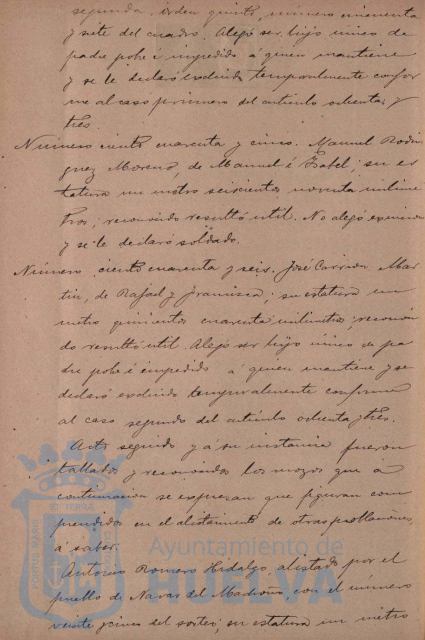 segunda, orden quinto, número cincuenta
y siete del cuadro. Alegó ser hijo único de
padre pobre é impedido á quien mantiene
y se le declaró excluido temporalmente confor
me al caso primero del artículo ochenta y
tres.
Número ciento cuarenta y cinco. Manuel Rodri
guez Moreno, de Manuel é Isabel; su es
tatura un metro seiscientos noventa milime
tros; reconocido resultó útil. No alegó
y se le declaró soldado.
Número ciento cuarenta y seis. José Mar
tin, de Rafael y Francisca; su estatura un
metro quinientos cuarenta milimetros; reconoci
do resultó útil. Alegó ser hijo único de pa
dre pobre é impedido á quien mantiene y se
declaró excluido temporalmente conforme
al caso segundo del artículo ochenta y tres.
Acto seguido y á su instancia fueron
tallados y reconocidos los mozos que á
continuación se expresan que figuran com
prendidos en el alistamiento de otras poblaciones,
á saber.
Antonio Romero Hidalgo, alistado por el
pueblo de Navas del Madroño, con el número
veinte y cinco del sorteo; su estatura un metro
Ayuntamiento de
HUELVA